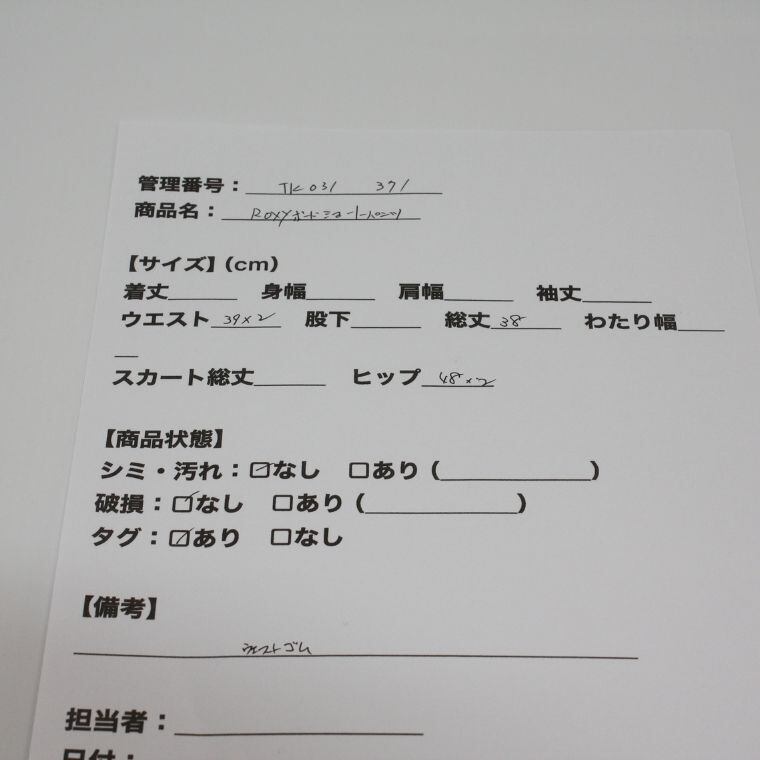 管理番号： TK031 371
商品名： ROXYボードショートパンツ
【サイズ】（cm）
着丈______ 身幅______ 肩幅______ 袖丈______
ウエスト 39×2 股下______ 総丈 38 わたり幅____
__
スカート総丈______ ヒップ 48×2
【商品状態】
シミ・汚れ：☑なし □あり（_____________）
破損：☑なし □あり（_____________）
タグ：☑あり □なし
【備考】
ウエストゴム
担当者：
日付：